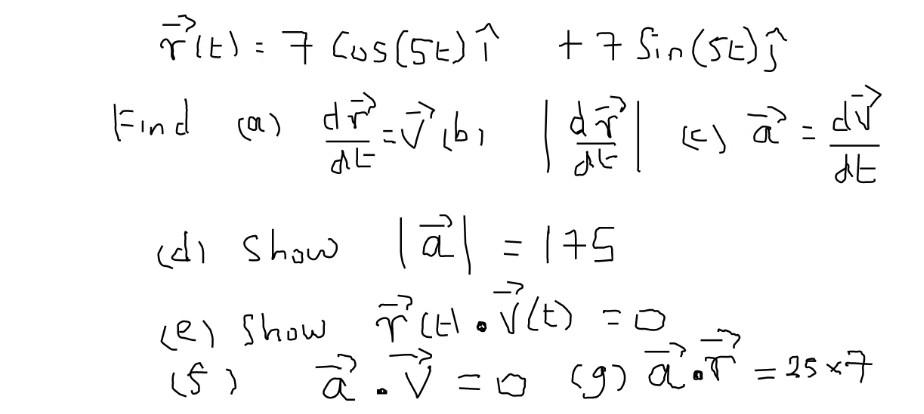 r⃗(t) = 7 Cos(5t) î + 7 Sin(5t) ĵ
Find (a) dr⃗/dt = V⃗ (b) |dr⃗/dt| (c) a⃗ = dV⃗/dt
(d) Show |a⃗| = 175
(e) Show r⃗(t) · V⃗(t) = 0
(f) a⃗ · V⃗ = 0 (g) a⃗ · r⃗ = 25 × 7